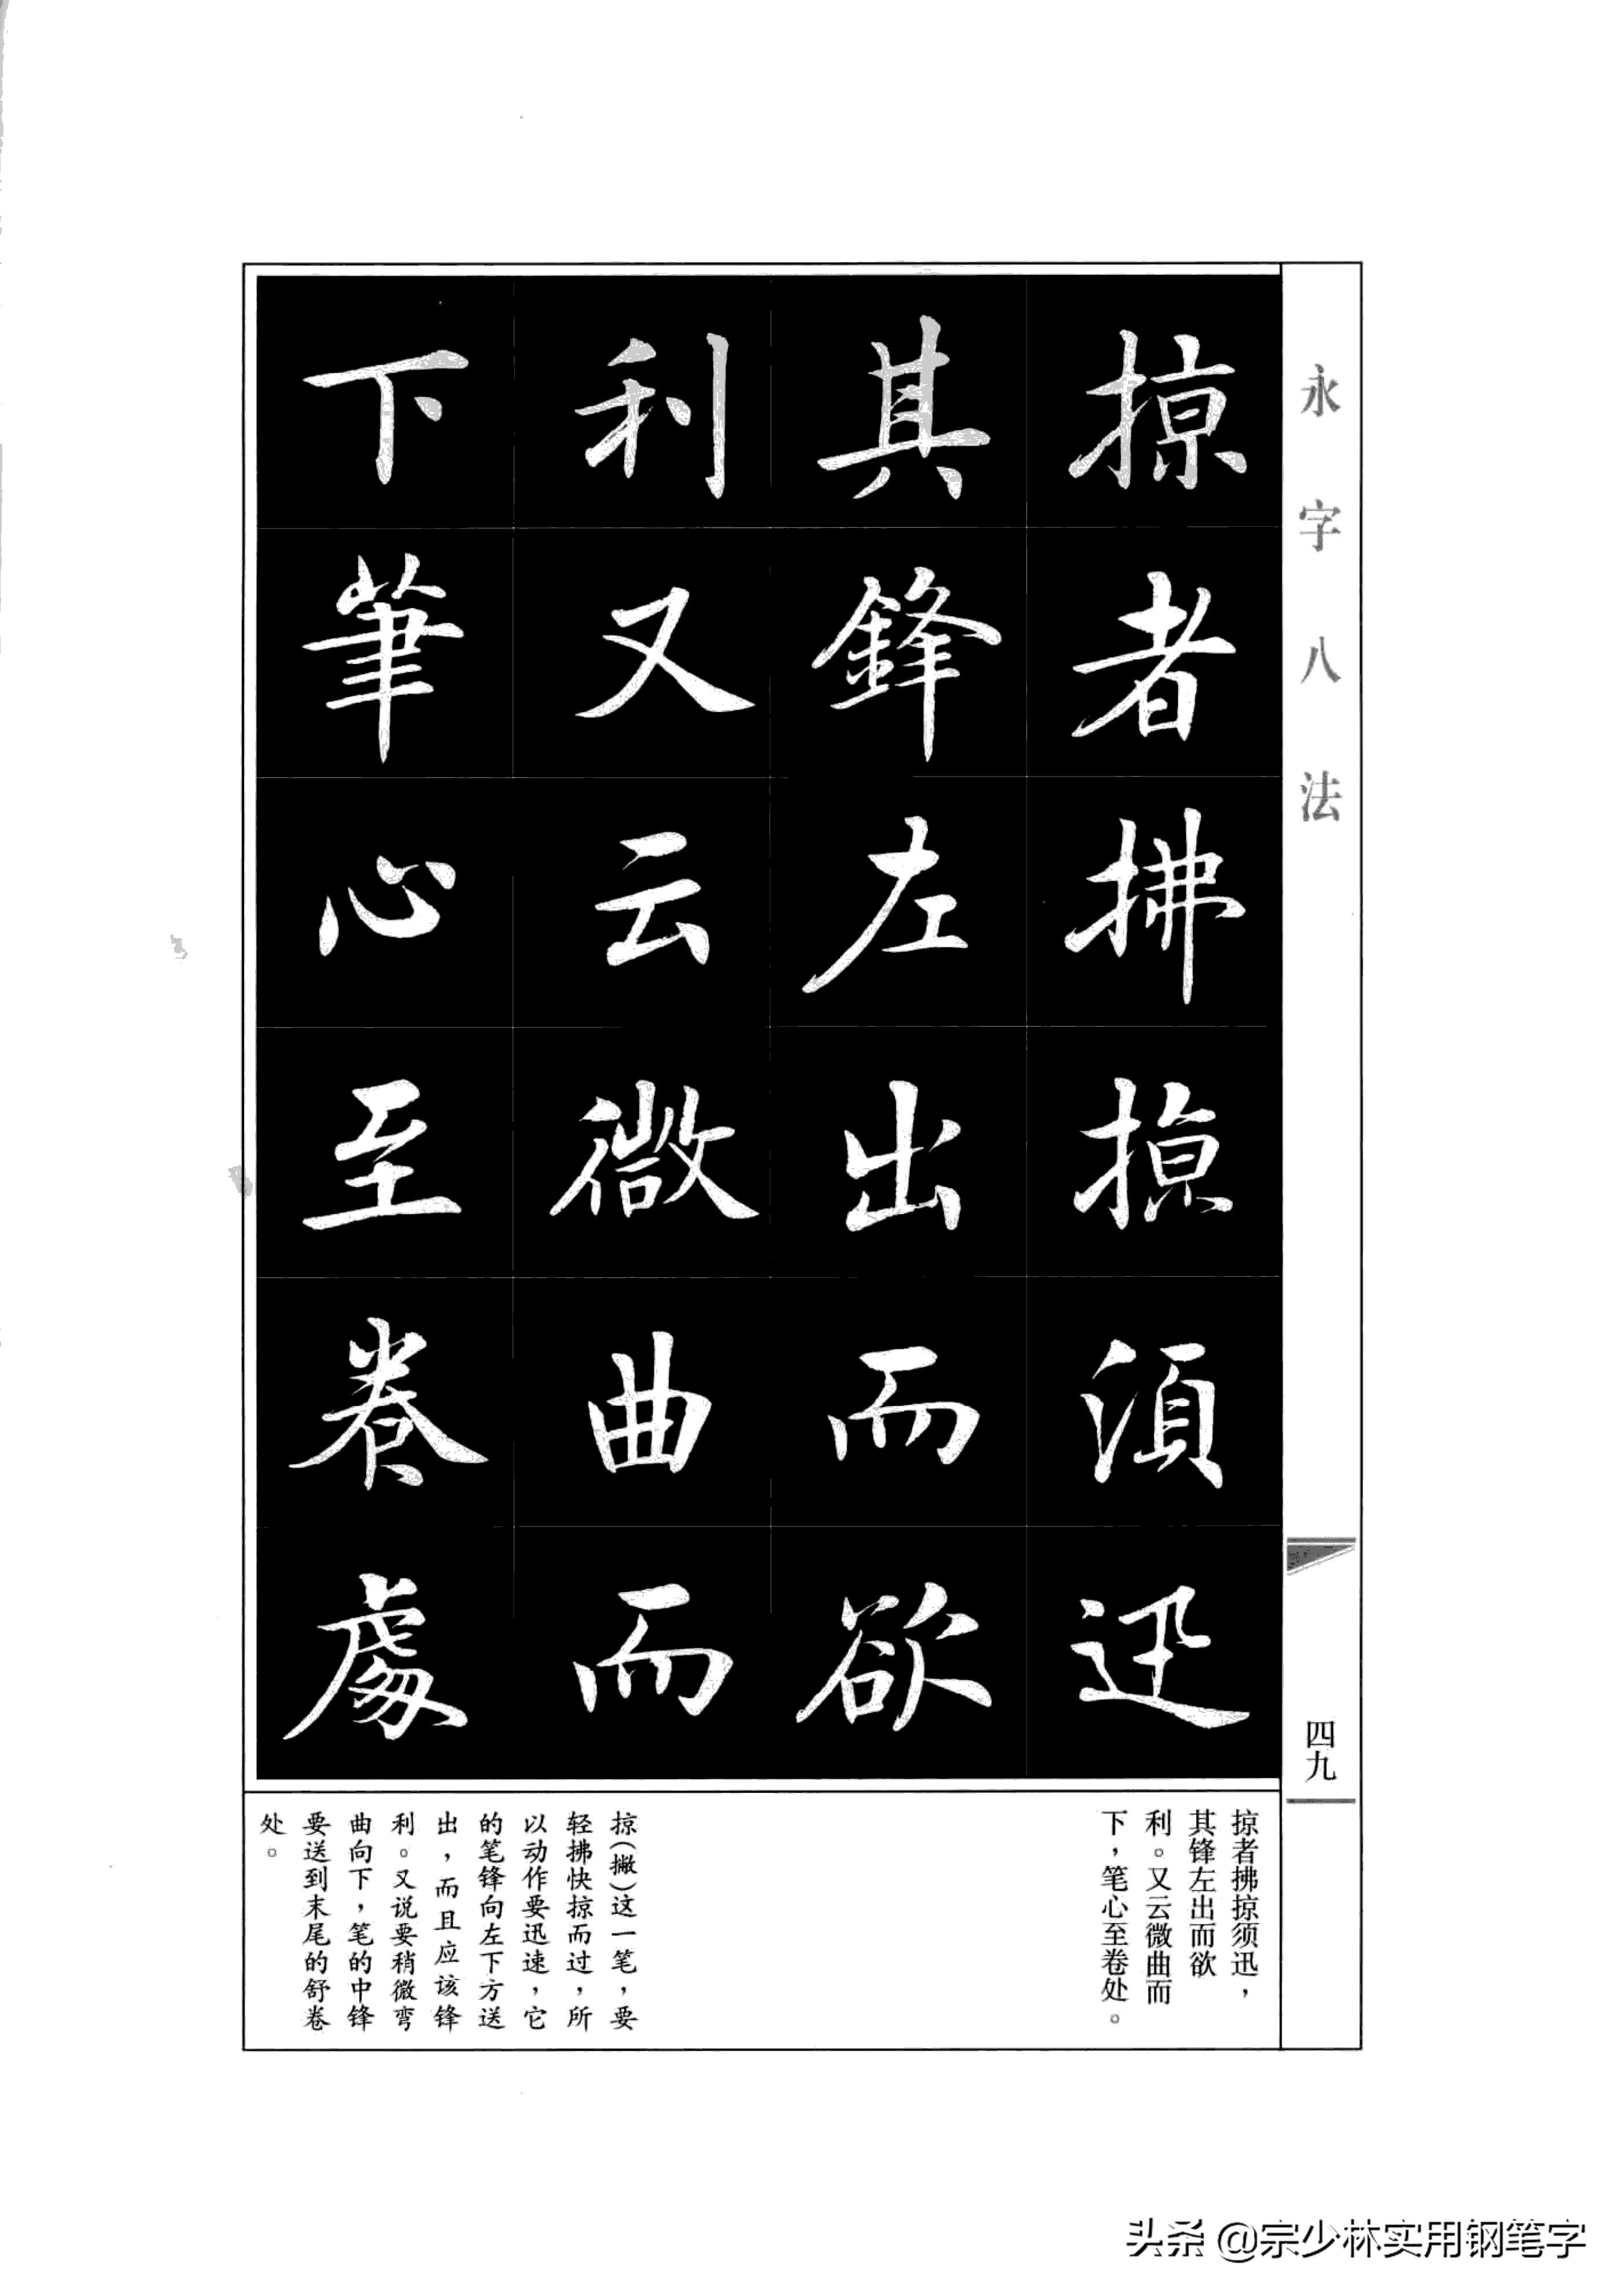 永字八法
掠者拂掠須迅
其鋒左出而欲
利又云微曲而
下筆心至卷處
四九
掠者拂掠须迅，
其锋左出而欲
利。又云微曲而
下，笔心至卷处。
掠（撇）这一笔，要
轻拂快掠而过，所
以动作要迅速，它
的笔锋向左下方送
出，而且应该锋
利。又说要稍微弯
曲向下，笔的中锋
要送到末尾的舒卷
处。
头条 @宗少林实用钢笔字